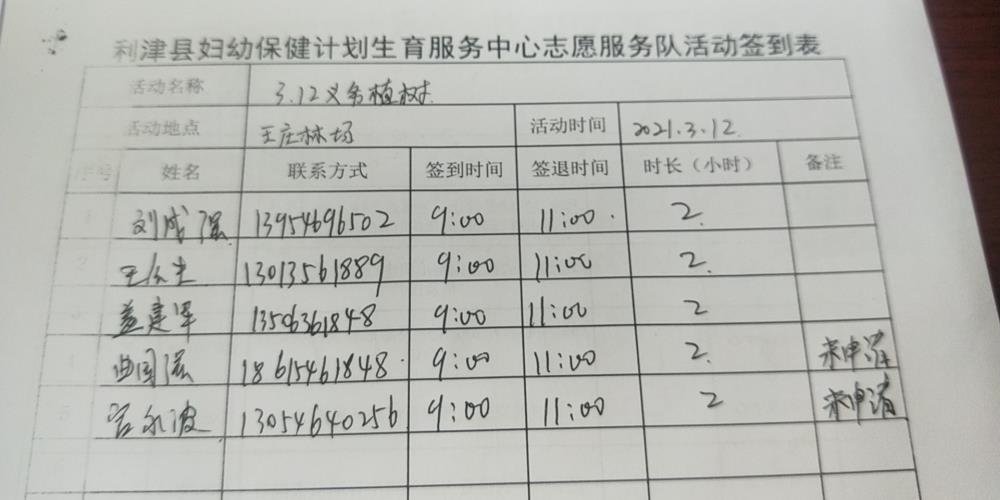 利津县妇幼保健计划生育服务中心志愿服务队活动签到表
活动名称 3.12义务植树
活动地点 王庄林场 活动时间 2021.3.12.
序号 姓名 联系方式 签到时间 签退时间 时长（小时） 备注
1 刘成强 13954696502 9:00 11:00 2
2 13013561889 9:00 11:00 2
3 盖建军 13506361848 9:00 11:00 2
4 曲国强 18615461848 9:00 11:00 2 未申请
5 宫永波 13054640256 9:00 11:00 2 未申请